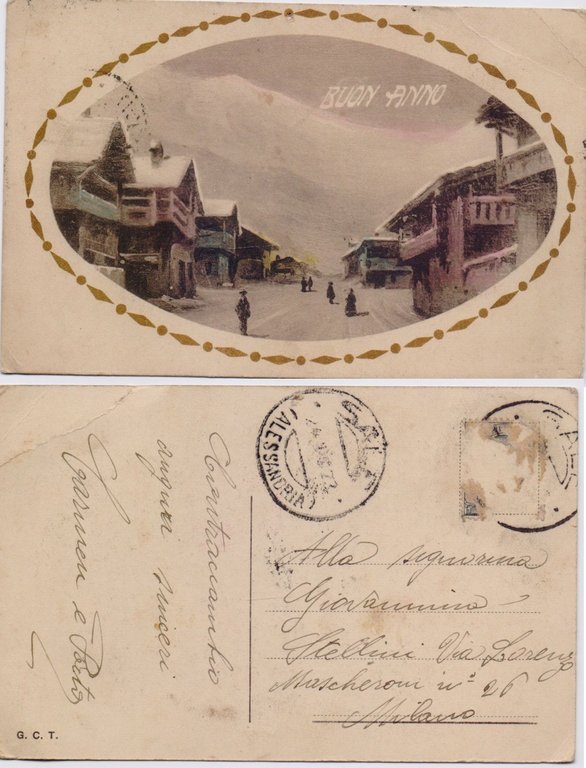 BUON ANNO
SALE
(ALESSANDRIA)
SALE
Contraccambio
auguri sinceri
Carmen e
Alla signorina
Giovannina
Stellini Via Lorenzo
Mascheroni nº 26
Milano
G. C. T.